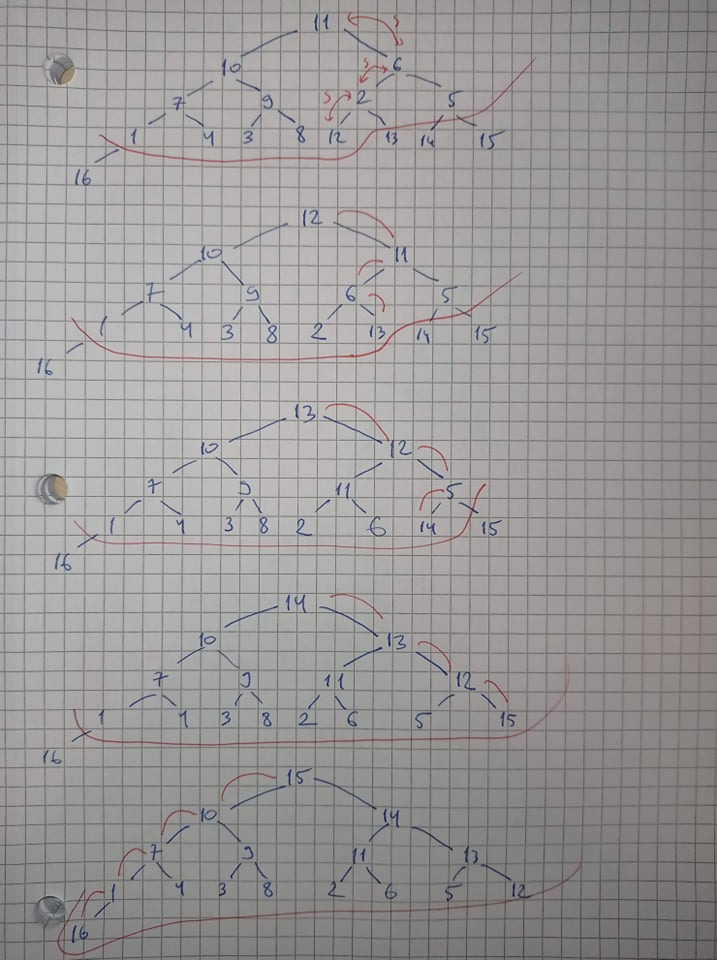 11 s
10 s 6
7 9 s 2 5
1 4 3 8 12 13 14 15
16
12
10 11
7 9 6 5
1 4 3 8 2 13 14 15
16
13
10 12
7 9 11 5
1 4 3 8 2 6 14 15
16
14
10 13
7 9 11 12
1 4 3 8 2 6 5 15
16
15
10 14
7 9 11 13
1 4 3 8 2 6 5 12
16